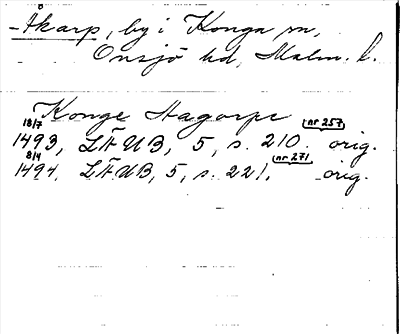 -Åkarp, by i Konga sn,
Onsjö hd, Malm. l.
Konge Hagorpe
18/7 nr 257
1493, LÄUB, 5, s. 210. orig.
8/4 nr 271
1494, LÄUB, 5, s. 221. orig.